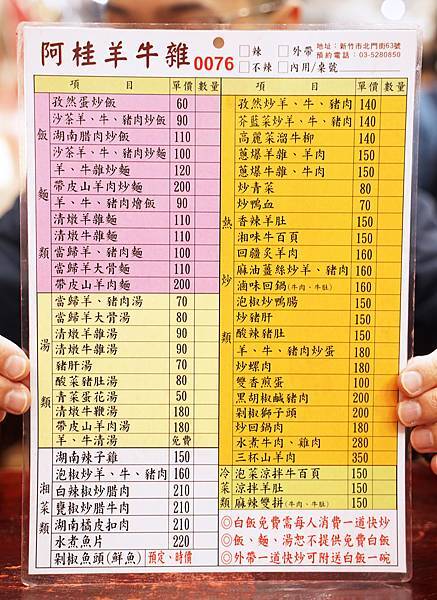 阿桂羊牛雜 0076 □辣 □外帶 地址：新竹市北門街63號
□不辣 □內用/桌號 預約電話：03-5280850
項 目 單價 數量
飯麵類
孜然蛋炒飯 60
沙茶羊、牛、豬肉炒飯 90
湖南腊肉炒飯 110
沙茶羊、牛、豬肉炒麵 100
羊、牛雜炒麵 120
帶皮山羊肉炒麵 200
羊、牛、豬肉燴飯 90
清燉羊雜麵 110
清燉牛雜麵 110
當歸羊、豬肉麵 100
當歸羊大骨麵 110
帶皮山羊肉麵 200
湯類
當歸羊、豬肉湯 70
當歸羊大骨湯 80
清燉羊雜湯 90
清燉牛雜湯 90
豬肝湯 70
酸菜豬肚湯 80
青菜蛋花湯 50
清燉牛鞭湯 180
帶皮山羊肉湯 180
羊、牛清湯 免費
湘菜類
湖南辣子雞 150
泡椒炒羊、牛、豬肉 160
白辣椒炒腊肉 210
甕椒炒腊肉 210
湖南橘皮扣肉 210
水煮魚片 220
剁椒魚頭(鮮魚) 預定、時價
項 目 單價 數量
熱炒類
孜然炒羊、牛、豬肉 140
芥藍菜炒羊、牛、豬肉 140
高麗菜溜牛柳 140
蔥爆羊雜、羊肉 150
蔥爆牛雜、牛肉 150
炒青菜 80
炒鴨血 70
香辣羊肚 150
湘味牛百頁 150
回疆炙羊肉 160
麻油薑絲炒羊、豬肉 160
滷味回鍋(牛肉、牛肚) 160
泡椒炒鴨腸 150
炒豬肝 150
酸辣豬肚 150
羊、牛、豬肉炒蛋 180
炒螺肉 180
雙香煎蛋 100
黑胡椒鹹豬肉 200
剁椒獅子頭 200
炒回鍋肉 180
水煮牛肉、雞肉 280
三杯山羊肉 350
冷菜類
泡菜涼拌牛百頁 150
涼拌羊肚 150
麻辣雙拼(牛肉、牛肚) 150
◎白飯免費需每人消費一道快炒
◎飯、麵、湯恕不提供免費白飯
◎外帶一道快炒可附送白飯一碗